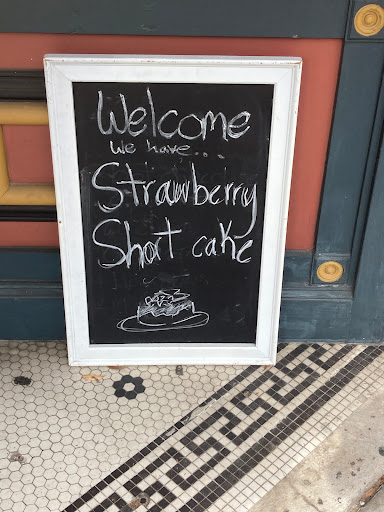 Welcome
We have...
Strawberry
Short cake